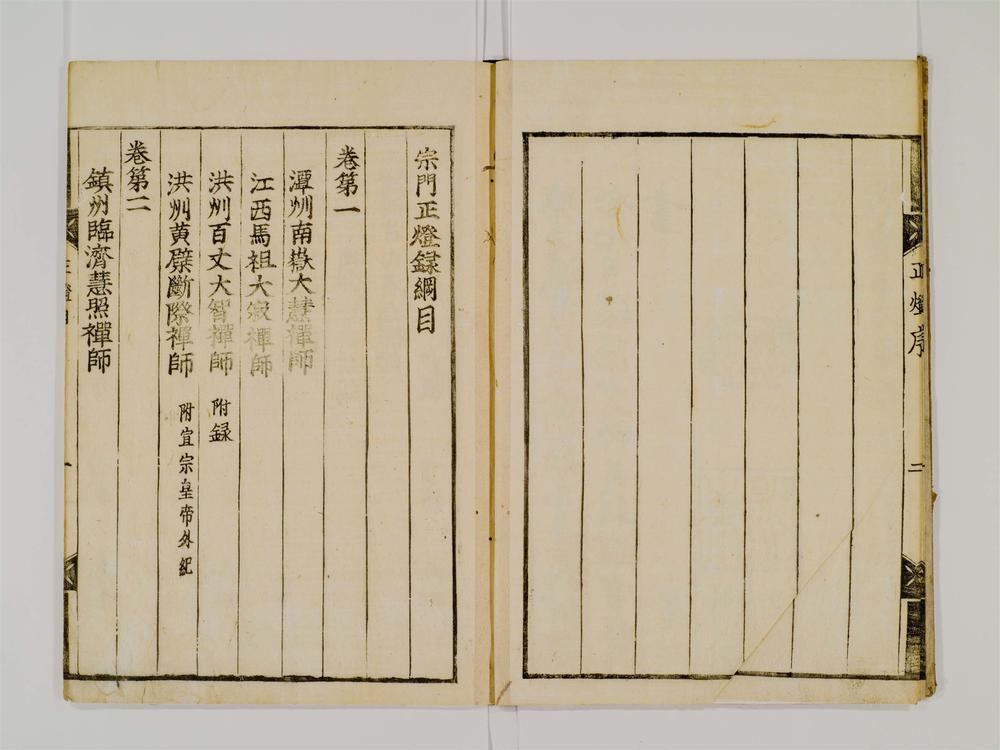 正燈序
二
宗門正燈録綱目
卷第一
潭州南嶽大慧禪師
江西馬祖大寂禪師
洪州百丈大智禪師 附録
洪州黄檗斷際禪師 附宣宗皇帝外紀
卷第二
鎮州臨濟慧照禪師
正燈目
一